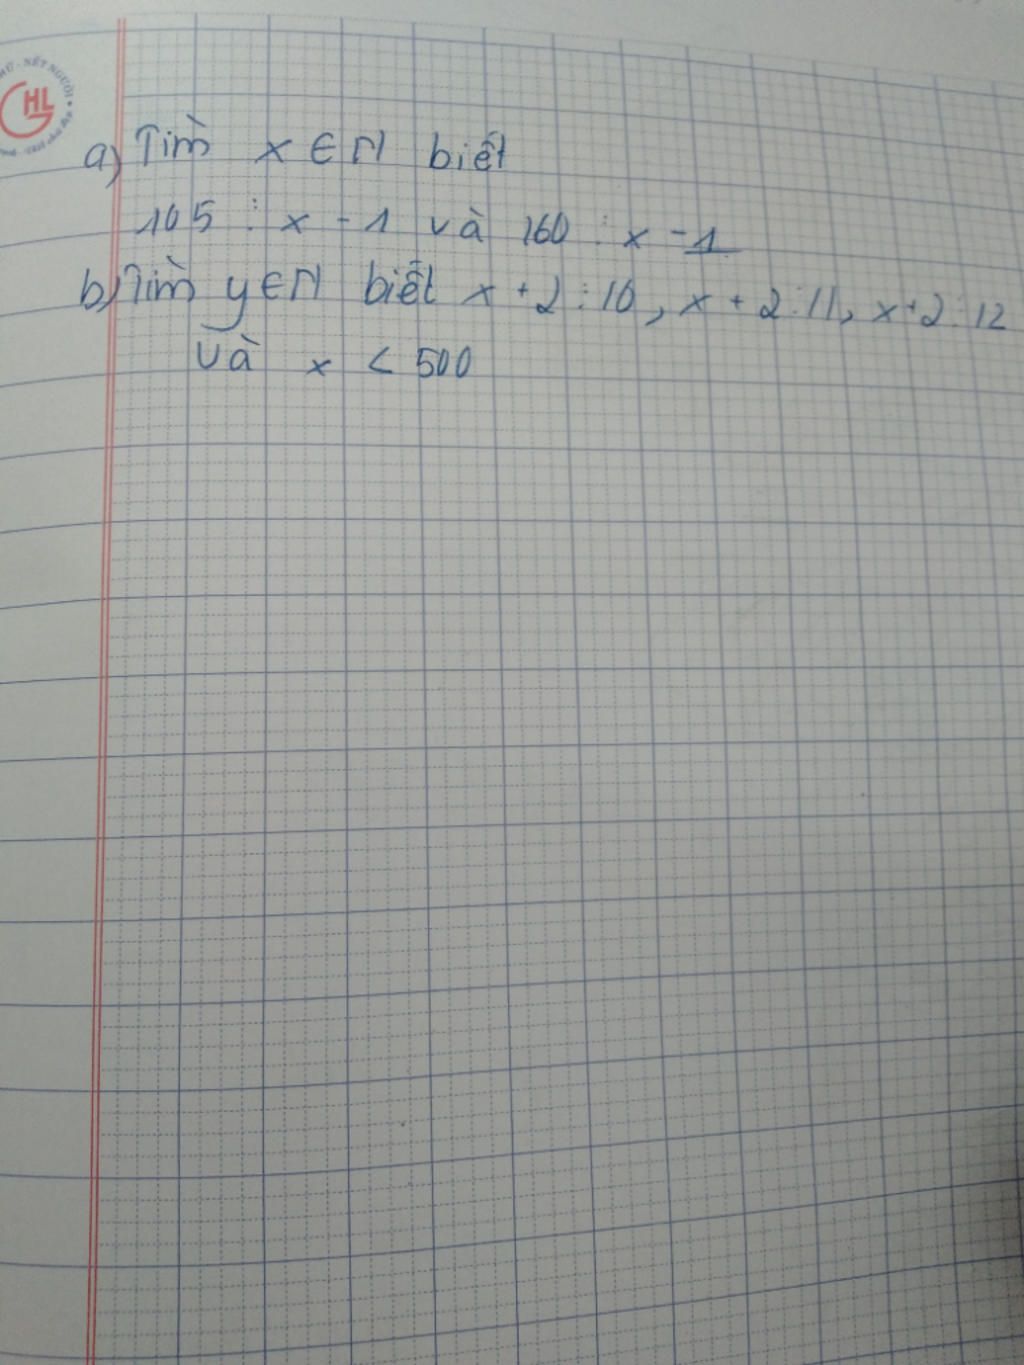 HỮ - NẾT NGƯỜI
HL
a) Tìm x ∈ N biết
105 ⋮ x - 1 và 160 ⋮ x - 1
b) Tìm y ∈ N biết x + 2 ⋮ 10, x + 2 ⋮ 11, x + 2 ⋮ 12
và x < 500